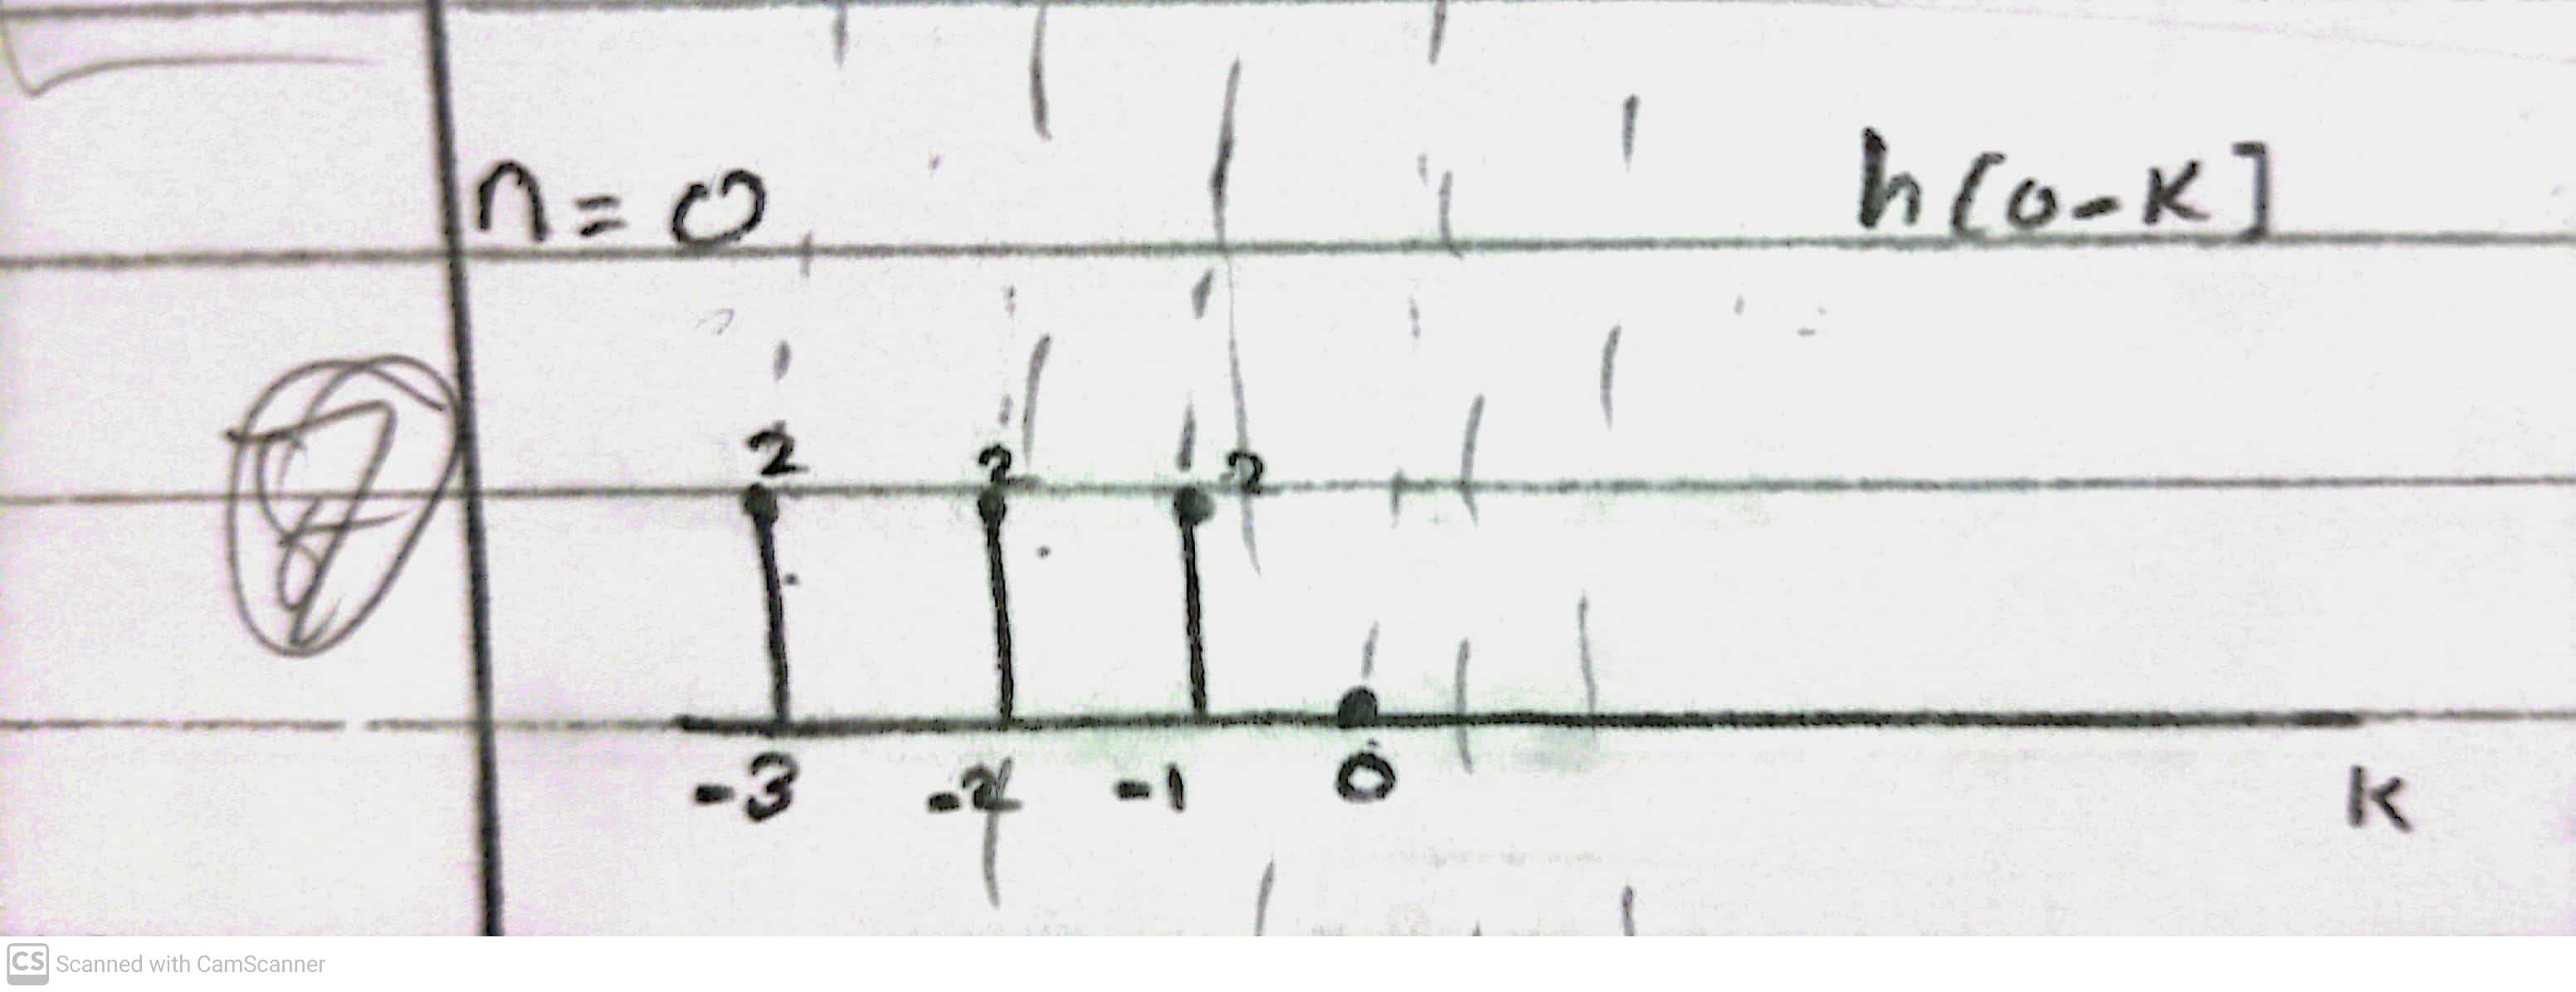 n = 0 h(0-K]
2 2 2
-3 -2 -1 0 K
CS Scanned with CamScanner